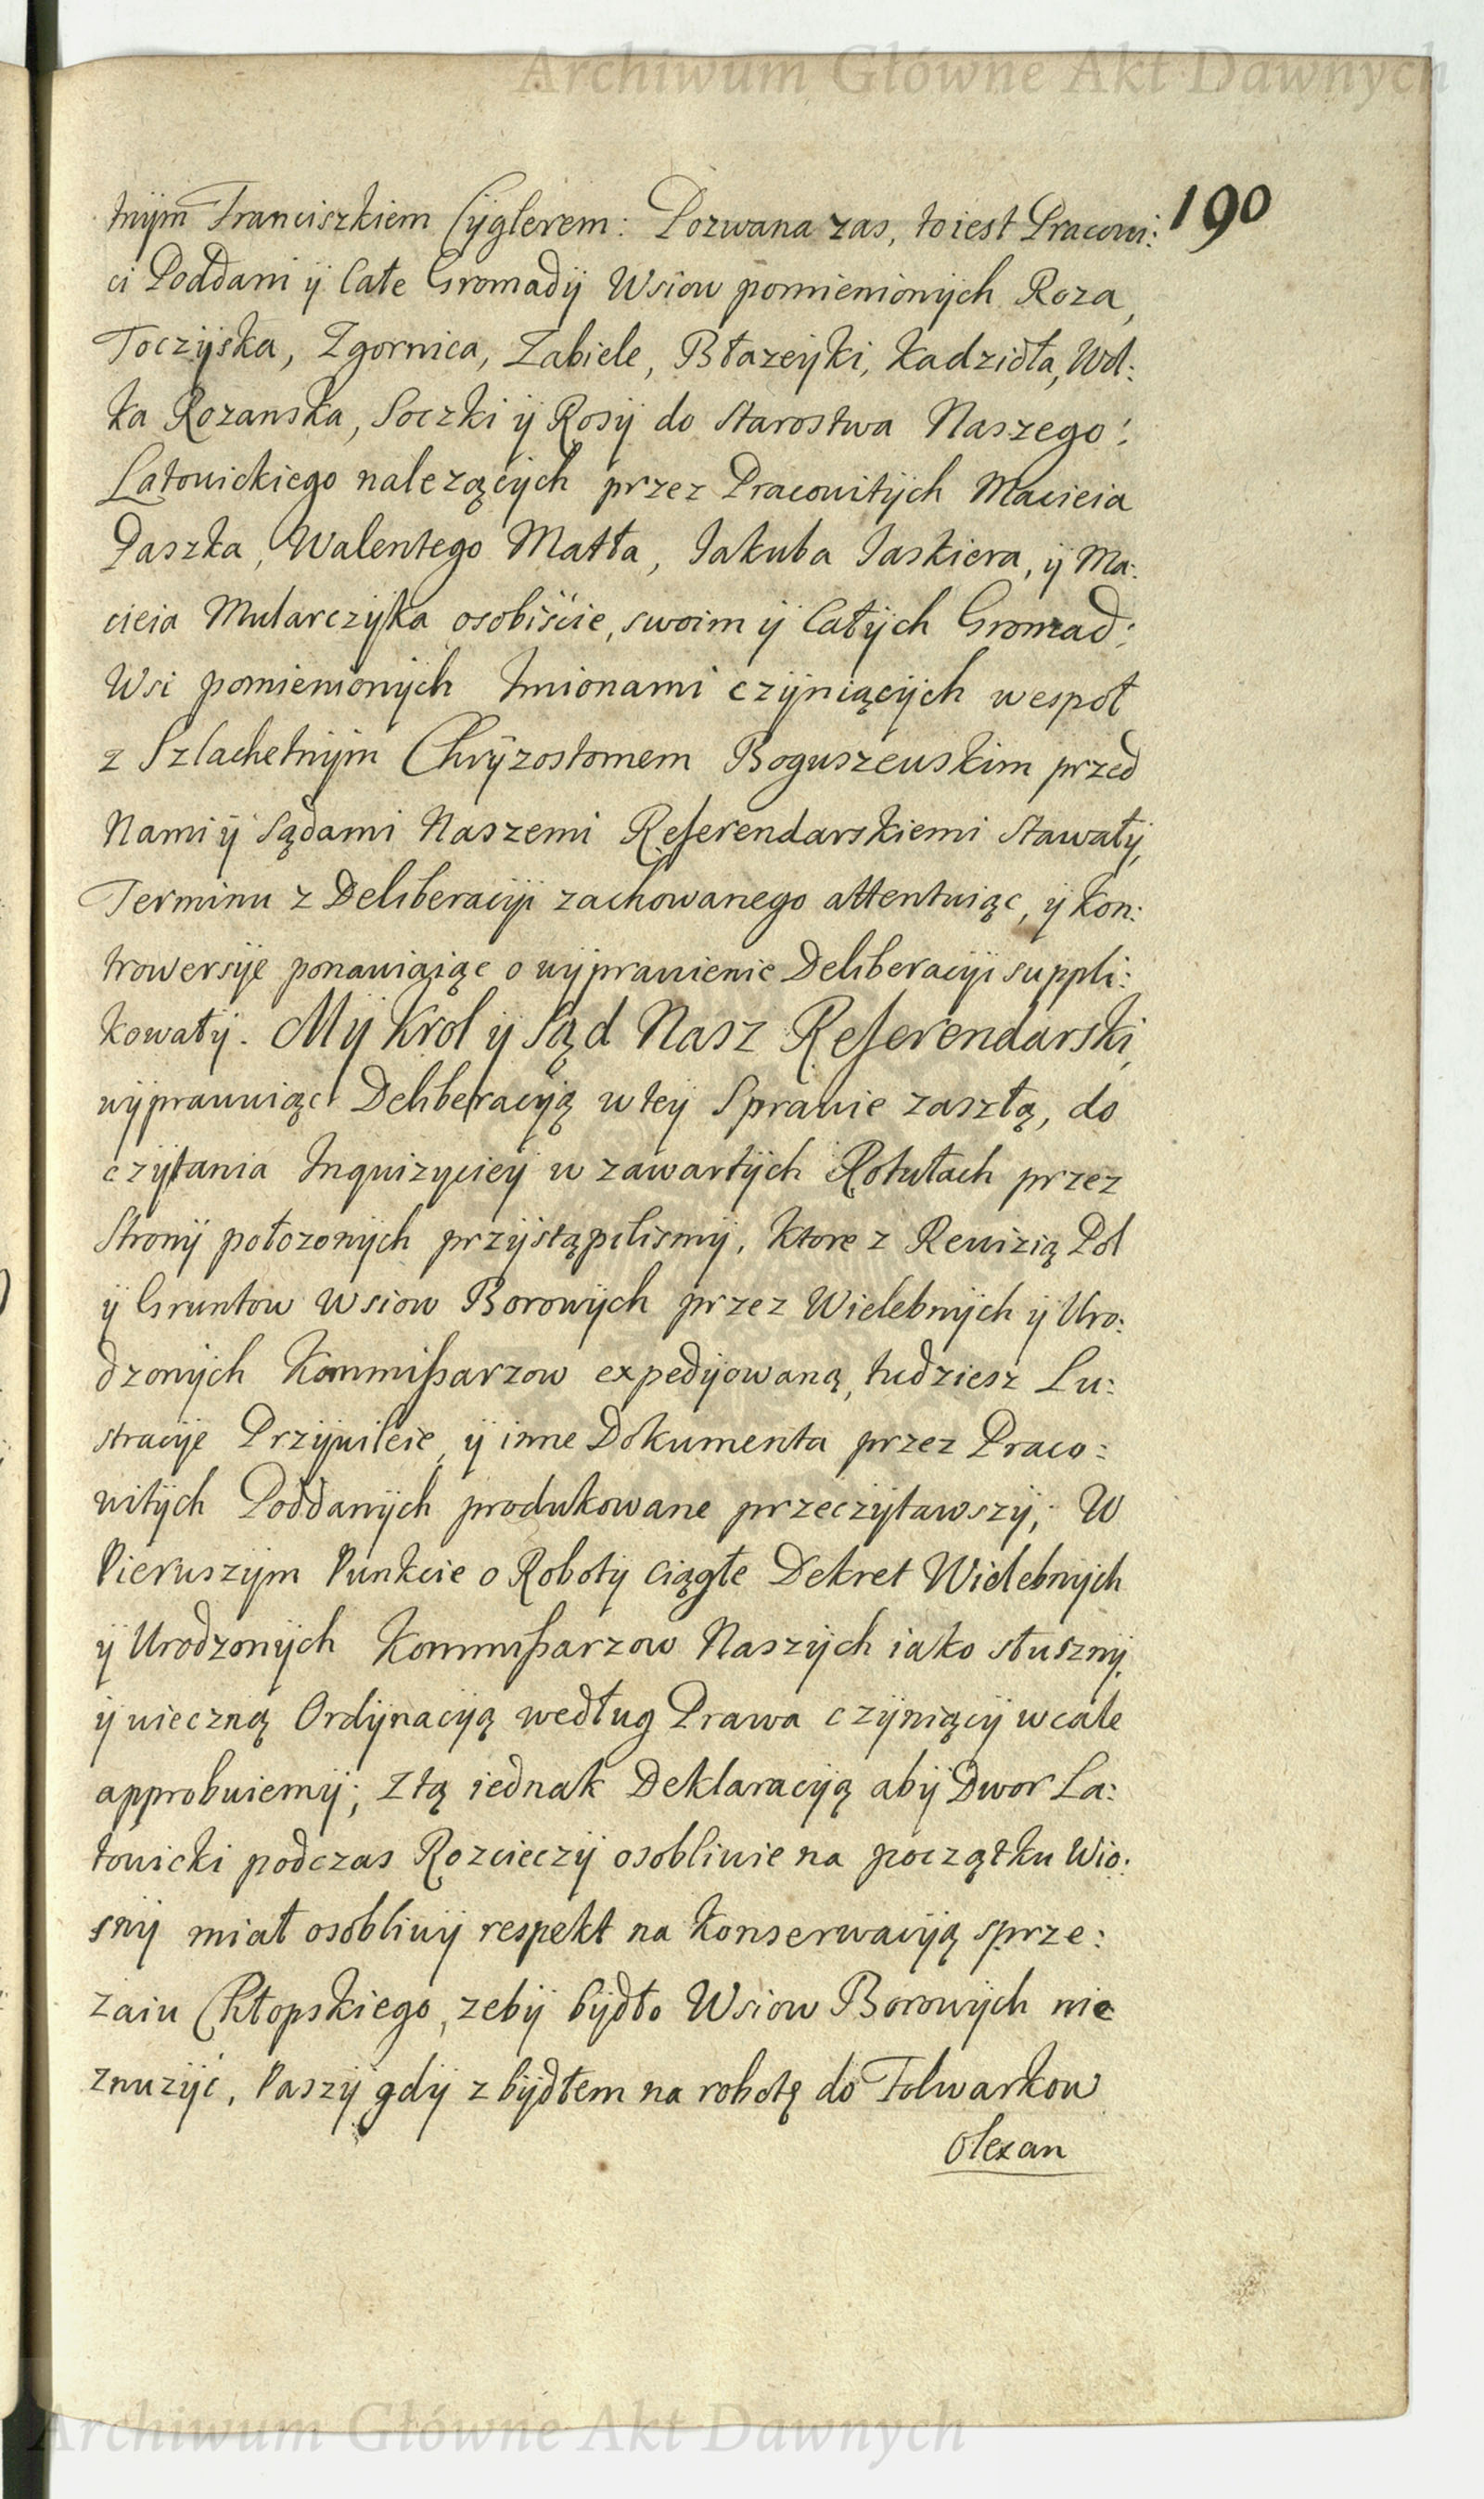 Archiwum Główne Akt Dawnych
190
tnÿm Franciszkiem Cÿglerem: Pozwana zas, toiest Pracowi:
ci Poddani ÿ Całe Gromadÿ Wsiow pomienionÿch Roza,
Toczÿska, Zgornica, Zabiele, Błazeÿki, Kadzidła, Wol:
ka Rozanska, Soczki ÿ Rosÿ do Starostwa Naszego:
Latowickiego nalezącÿch przez Pracowitÿch Macieia
Paszka, Walentego Matła, Jakuba Jaskiera, ÿ Ma:
cieia Mularczÿka osobiście, swoim ÿ Całÿch Gromad:
Wsi pomienionÿch Imionami czÿniącÿch wespoł
z Szlachetnÿm Chrÿzostomem Boguszewskim przed
Nami ÿ Sądami Naszemi Referendarskiemi stawałÿ,
Terminu z Deliberacÿi zachowanego attentuiąc, ÿ Kon:
trowersÿe ponawiaiąc o wÿprawienie Deliberacÿi suppli:
kowałÿ. Mÿ Krol ÿ Sąd Nasz Referendarski,
wÿprawuiąc Deliberacÿą wteÿ Sprawie zaszłą, do
czÿtania Inquizycieÿ w zawartÿch Rotułach przez
Stronÿ połozonÿch przÿstąpilismÿ, Ktore z Rewizią Pol
ÿ Gruntow Wsiow Borowÿch przez Wielebnÿch ÿ Uro:
dzonÿch Kommißarzow expedÿowaną, tudziesz Lu:
stracÿe Przÿwileie, ÿ inne Dokumenta przez Praco:
witÿch Poddanÿch produkowane przeczÿtawszÿ; W
Pierwszÿm Punkcie o Robotÿ ciągłe Dekret Wielebnÿch
ÿ Urodzonÿch Kommißarzow Naszÿch iako słusznÿ,
ÿ wieczną Ordÿnacÿą według Prawa czÿniącÿ wcale
approbuiemÿ; Ztą iednak Deklaracÿą abÿ Dwor La:
towicki podczas Rozcieczÿ osobliwie na początku Wio:
snÿ miał osobliwÿ respekt na Konserwacÿą sprze:
zaiu Chłopskiego, zebÿ bÿdło Wsiow Borowÿch nie
znuzÿć, Paszÿ gdÿ z bÿdłem na robotę do Folwarkow
Olexan
Archiwum Główne Akt Dawnych